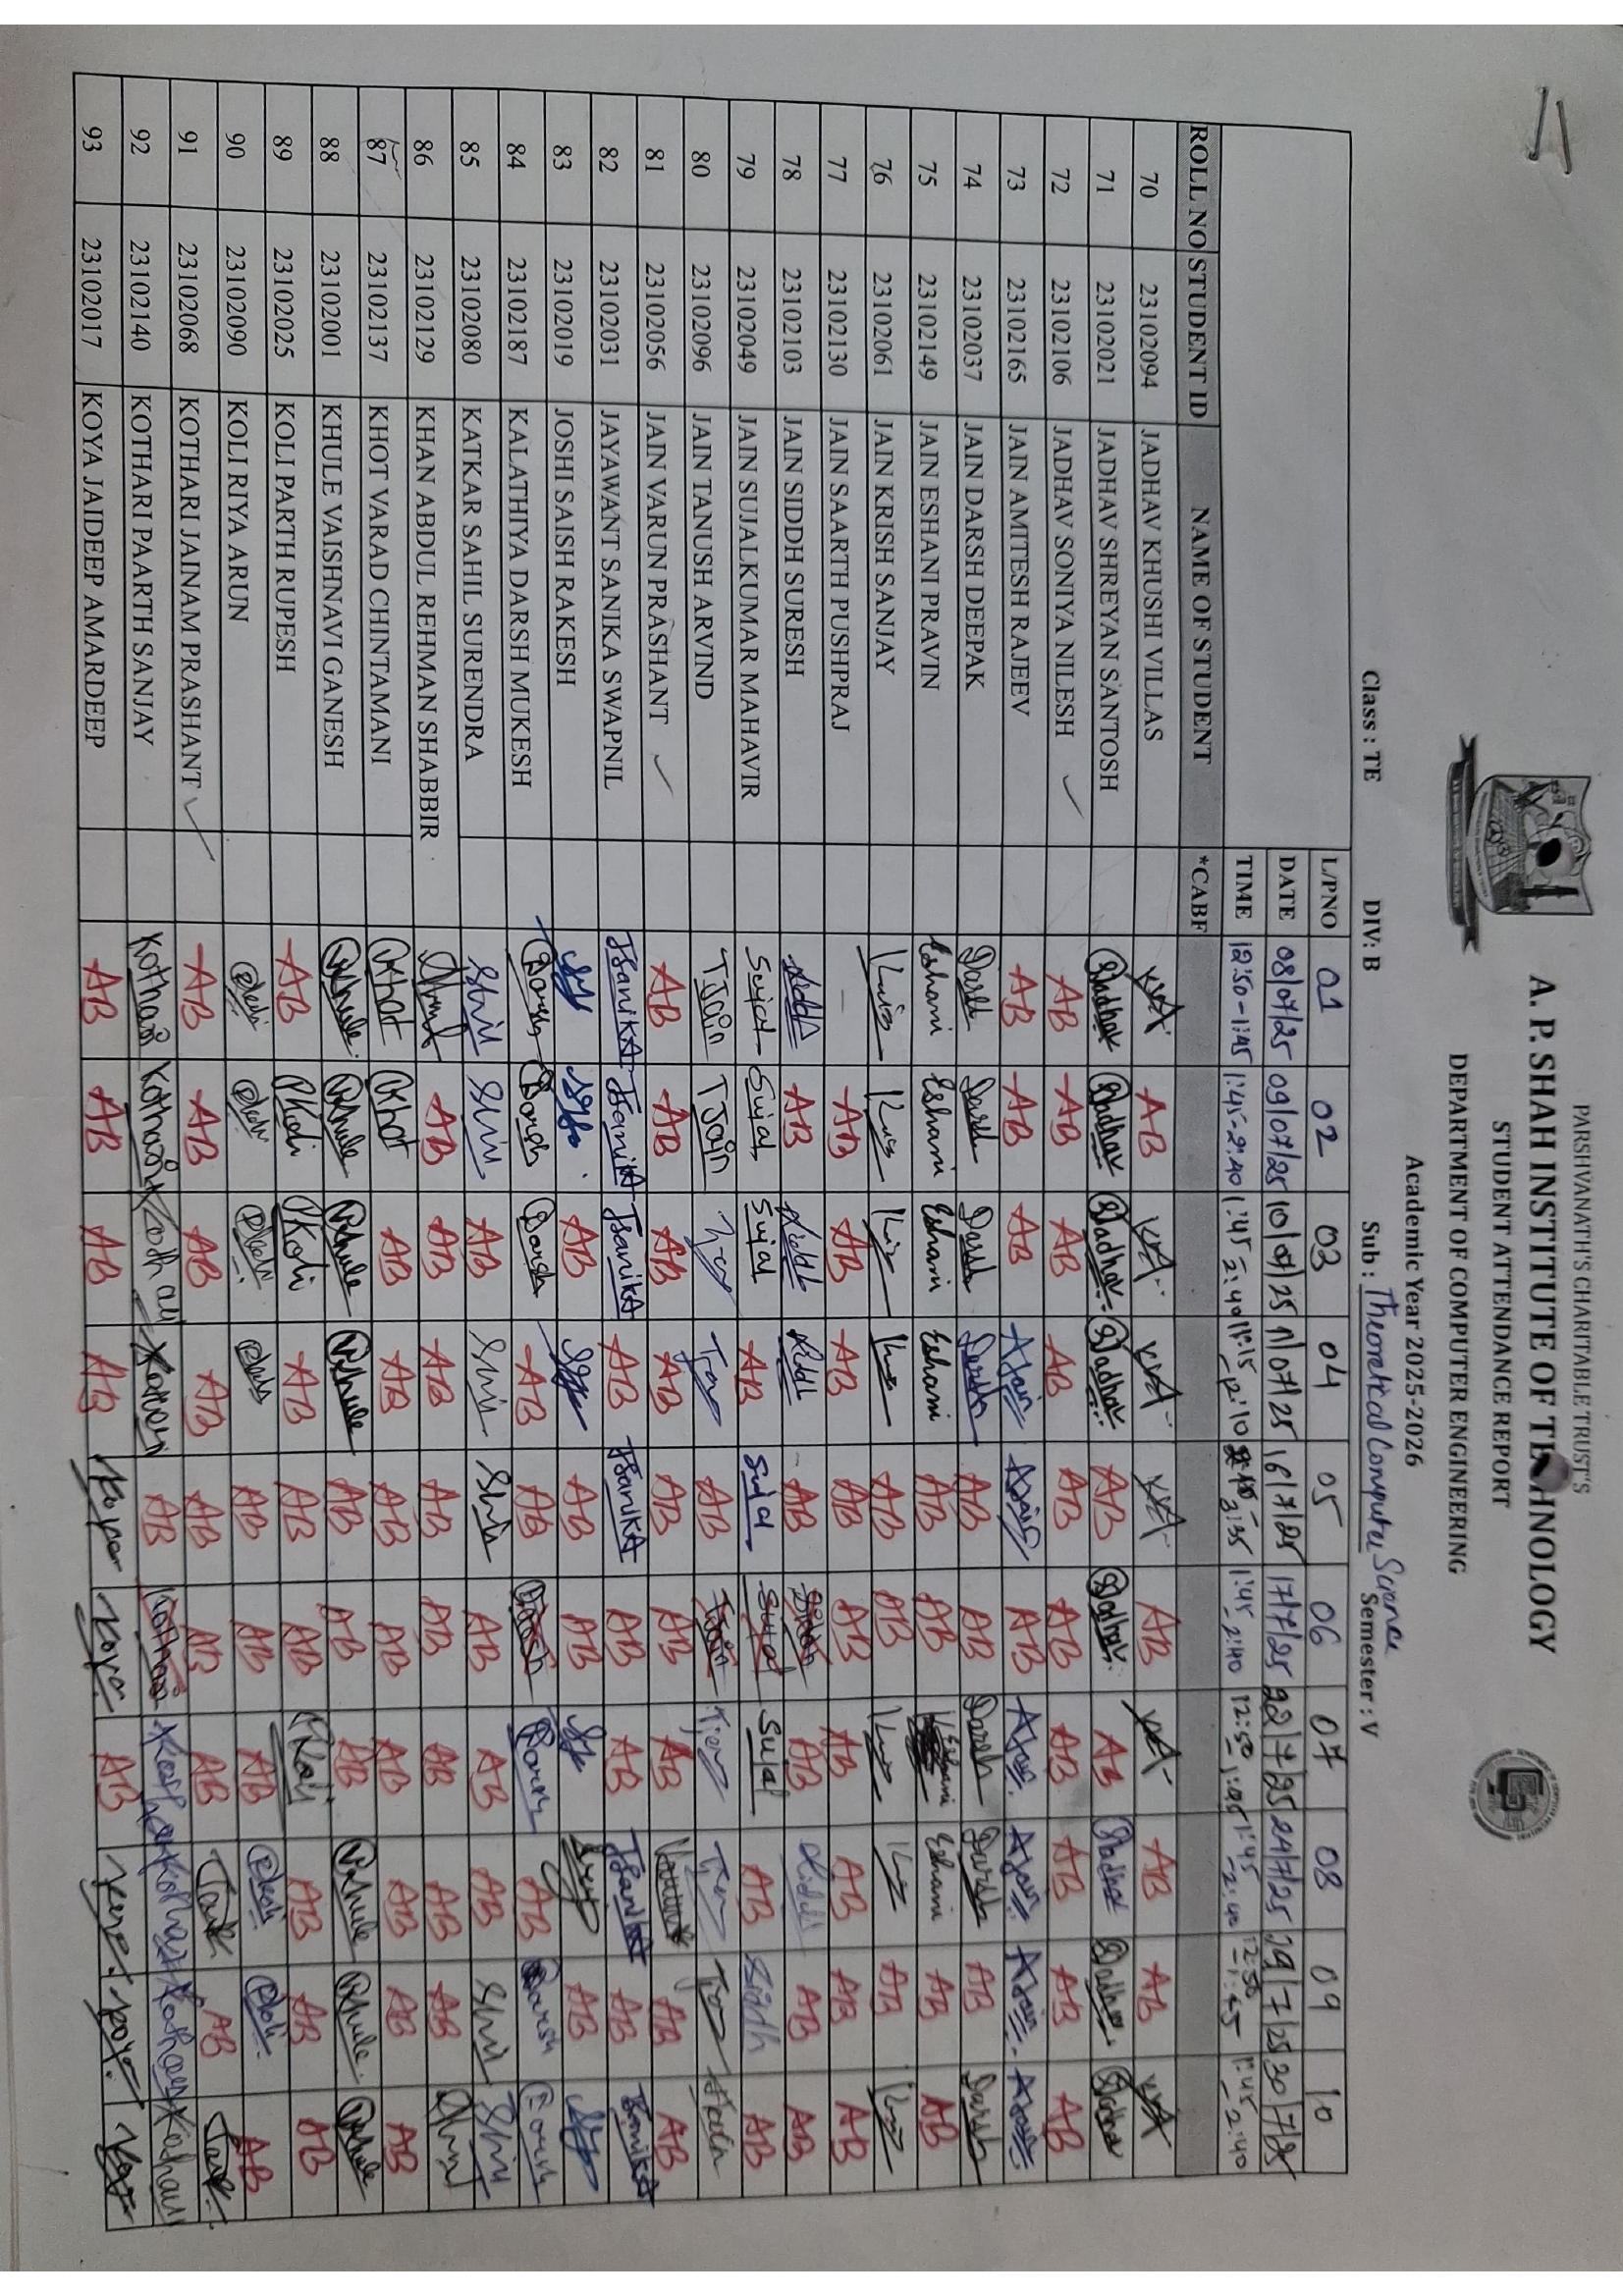 PARSHVANATH'S CHARITABLE TRUST'S
A. P. SHAH INSTITUTE OF TECHNOLOGY
STUDENT ATTENDANCE REPORT
DEPARTMENT OF COMPUTER ENGINEERING
Academic Year 2025-2026
Class : TE DIV: B Sub : Theoretical Computer Science Semester : V
L/PNO 01 02 03 04 05 06 07 08 09 10
DATE 08/07/25 09/07/25 10/07/25 11/07/25 16/7/25 17/7/25 22/7/25 24/7/25 29/7/25 30/7/25
TIME 12:50-1:45 1:45-2:40 1:45-2:40 1:15-2:10 3:35 1:45-2:40 12:50-1:45 1:45-2:40 12:50-1:45 1:45-2:40
ROLL NO STUDENT ID NAME OF STUDENT *CABF
70 23102094 JADHAV KHUSHI VILLAS AB AB AB AB
71 23102021 JADHAV SHREYAN SANTOSH AB AB
72 23102106 JADHAV SONIYA NILESH AB AB AB AB AB AB AB AB AB AB
73 23102165 JAIN AMITESH RAJEEV AB AB AB AJain AJain AB AJain AJain AJain AJain
74 23102037 JAIN DARSH DEEPAK Darsh Darsh Darsh Darsh AB AB Darsh Darsh AB Darsh
75 23102149 JAIN ESHANI PRAVIN Eshani Eshani Eshani Eshani AB AB Eshani Eshani AB AB
76 23102061 JAIN KRISH SANJAY AB AB AB
77 23102130 JAIN SAARTH PUSHPRAJ - AB AB AB AB AB AB AB AB AB
78 23102103 JAIN SIDDH SURESH AB AB AB AB AB
79 23102049 JAIN SUJALKUMAR MAHAVIR Sujal Sujal Sujal AB Sujal Sujal Sujal AB Siddh AB
80 23102096 JAIN TANUSH ARVIND TJain TJain AB TJain
81 23102056 JAIN VARUN PRASHANT AB AB AB AB AB AB AB AB AB
82 23102031 JAYAWANT SANIKA SWAPNIL JSanika JSanika JSanika AB JSanika AB AB JSanika AB JSanika
83 23102019 JOSHI SAISH RAKESH AB AB AB AB
84 23102187 KALATHIYA DARSH MUKESH Darsh Darsh Darsh AB AB Darsh Darsh AB Darsh Darsh
85 23102080 KATKAR SAHIL SURENDRA AB AB AB AB
86 23102129 KHAN ABDUL REHMAN SHABBIR AB AB AB AB AB AB AB AB
87 23102137 KHOT VARAD CHINTAMANI Khot Khot AB AB AB AB AB AB AB AB
88 23102001 KHULE VAISHNAVI GANESH VKhule VKhule VKhule VKhule AB AB AB VKhule VKhule VKhule
89 23102025 KOLI PARTH RUPESH AB PKoli PKoli AB AB AB PKoli AB AB AB
90 23102090 KOLI RIYA ARUN AB AB AB AB
91 23102068 KOTHARI JAINAM PRASHANT AB AB AB AB AB AB AB AB
92 23102140 KOTHARI PAARTH SANJAY Kothari Kothari Kothari AB Kothari
93 23102017 KOYA JAIDEEP AMARDEEP AB AB AB AB Koya Koya AB Koya